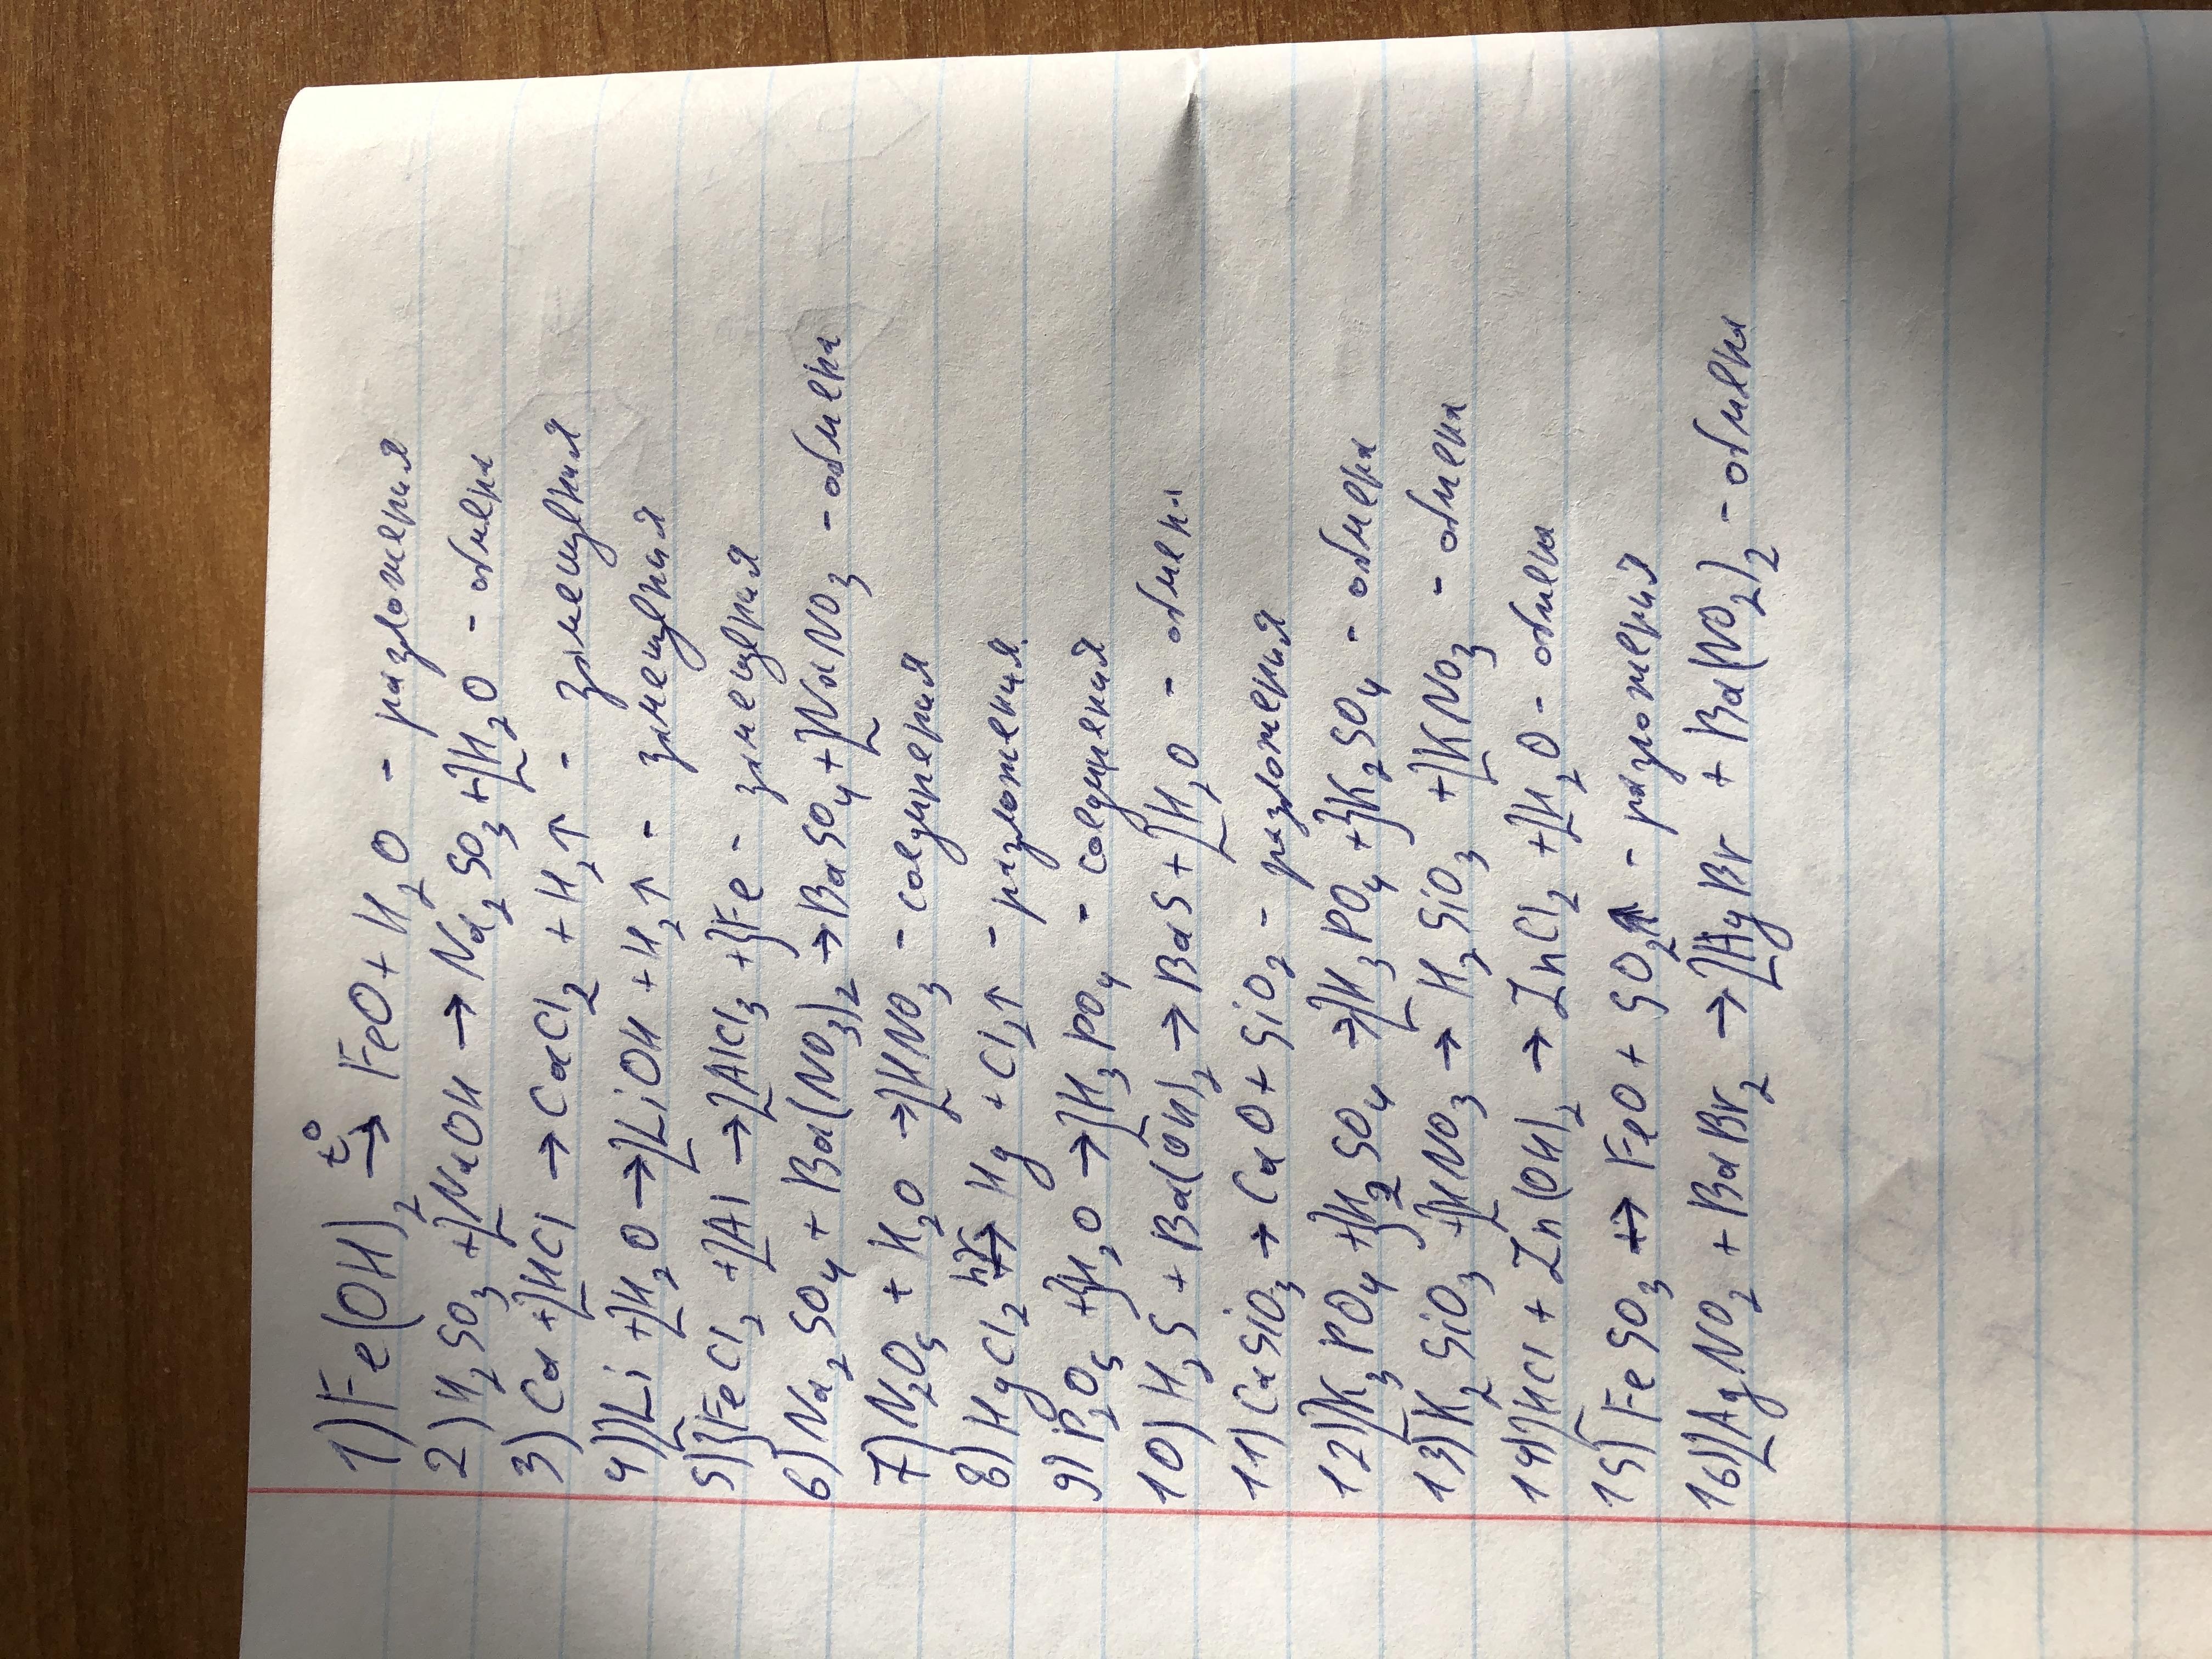 1) Fe(OH)₂ t°→ FeO + H₂O - разложения
2) H₂SO₃ + 2NaOH → Na₂SO₃ + 2H₂O - обмена
3) Ca + 2HCl → CaCl₂ + H₂↑ - замещения
4) 2Li + 2H₂O → 2LiOH + H₂↑ - замещения
5) 3FeCl₂ + 2Al → 2AlCl₃ + 3Fe - замещения
6) Na₂SO₄ + Ba(NO₃)₂ → BaSO₄ + 2NaNO₃ - обмена
7) N₂O₅ + H₂O → 2HNO₃ - соединения
8) HgCl₂ hγ→ Hg + Cl₂↑ - разложения
9) P₂O₅ + 3H₂O → 2H₃PO₄ - соединения
10) H₂S + Ba(OH)₂ → BaS + 2H₂O - обмена
11) CaSiO₃ → CaO + SiO₂ - разложения
12) 2K₃PO₄ + 3H₂SO₄ → 2H₃PO₄ + 3K₂SO₄ - обмена
13) K₂SiO₃ + 2HNO₃ → H₂SiO₃ + 2KNO₃ - обмена
14) 2HCl + Zn(OH)₂ → ZnCl₂ + 2H₂O - обмена
15) FeSO₃ → FeO + SO₂↑ - разложения
16) 2AgNO₂ + BaBr₂ → 2AgBr + Ba(NO₂)₂ - обмена